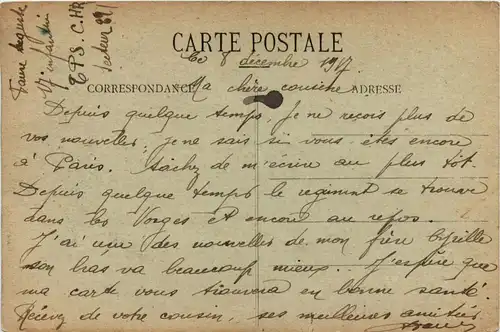 Faure Auguste
17 infanterie
C.H.R.
Secteur
CARTE POSTALE
Le 8 décembre 1917
CORRESPONDANCE
Ma chère cousine
ADRESSE
Depuis quelque temps, je ne reçois plus de
vos nouvelles, je ne sais si vous êtes encore
à Paris. Tachez de m'écrire au plus tôt.
Depuis quelque temps le regiment se trouve
dans les Vosges et encore au repos.
J'ai reçu des nouvelles de mon frère
son bras va beaucoup mieux. J'espère que
ma carte vous trouvera en bonne santé.
Recevez de votre cousin, ses meilleures amitiés